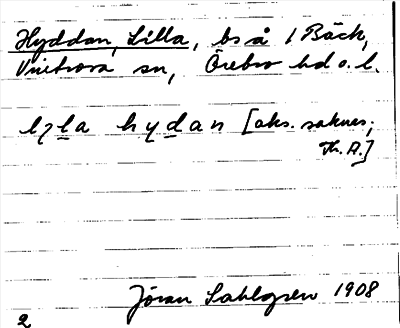 Hyddan, Lilla, bs å / Bäck,
Vintrosa sn, Örebro hd o. l.
lɩla hydan [aks. saknas;
Th. A.]
Jöran Sahlgren 1908
2